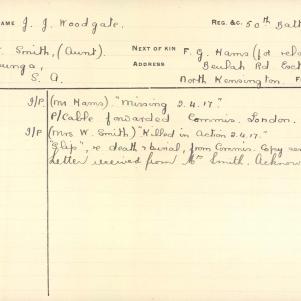 NAME J. J. Woodgate. REG. &C. 50th Batt
Smith, (Aunt). NEXT OF KIN F. G. Hams (
ADDRESS Beulah Rd
S. A. North Kensington.
I/P. (Mr Hams). "Missing 2.4.17."
P/Cable forwarded Commis. London.
I/P (Mrs W. Smith) "Killed in Action 2.4.17."
"Slip", re death & burial, from Commis. Copy
Letter received from Mrs Smith. Acknow